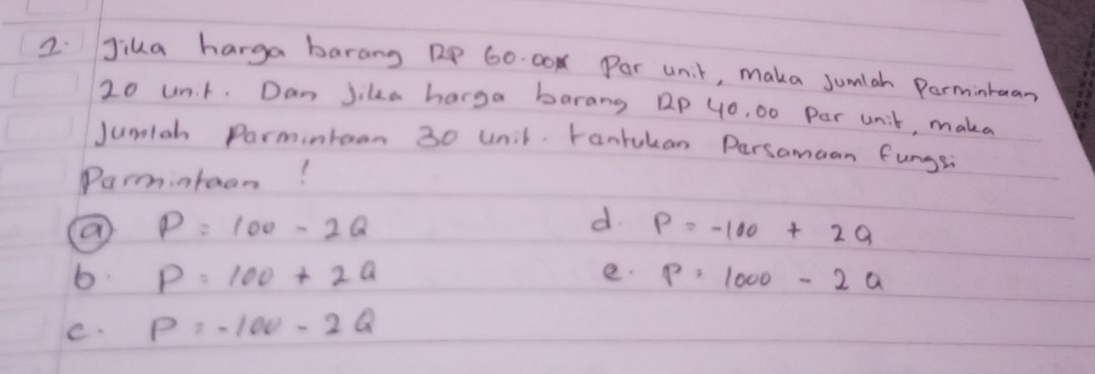 2. Jika harga barang RP 60.00 Par unit, maka jumlah Parmintaan
20 unit. Dan Jika harga barang RP 40.00 Par unit, maka
Jumlah Parmintaan 30 unit. tantukan Parsamaan fungsi
Parmintaan !
a P = 100 - 2Q
b. P = 100 + 2Q
c. P = -100 - 2Q
d. P = -100 + 2Q
e. P = 1000 - 2Q